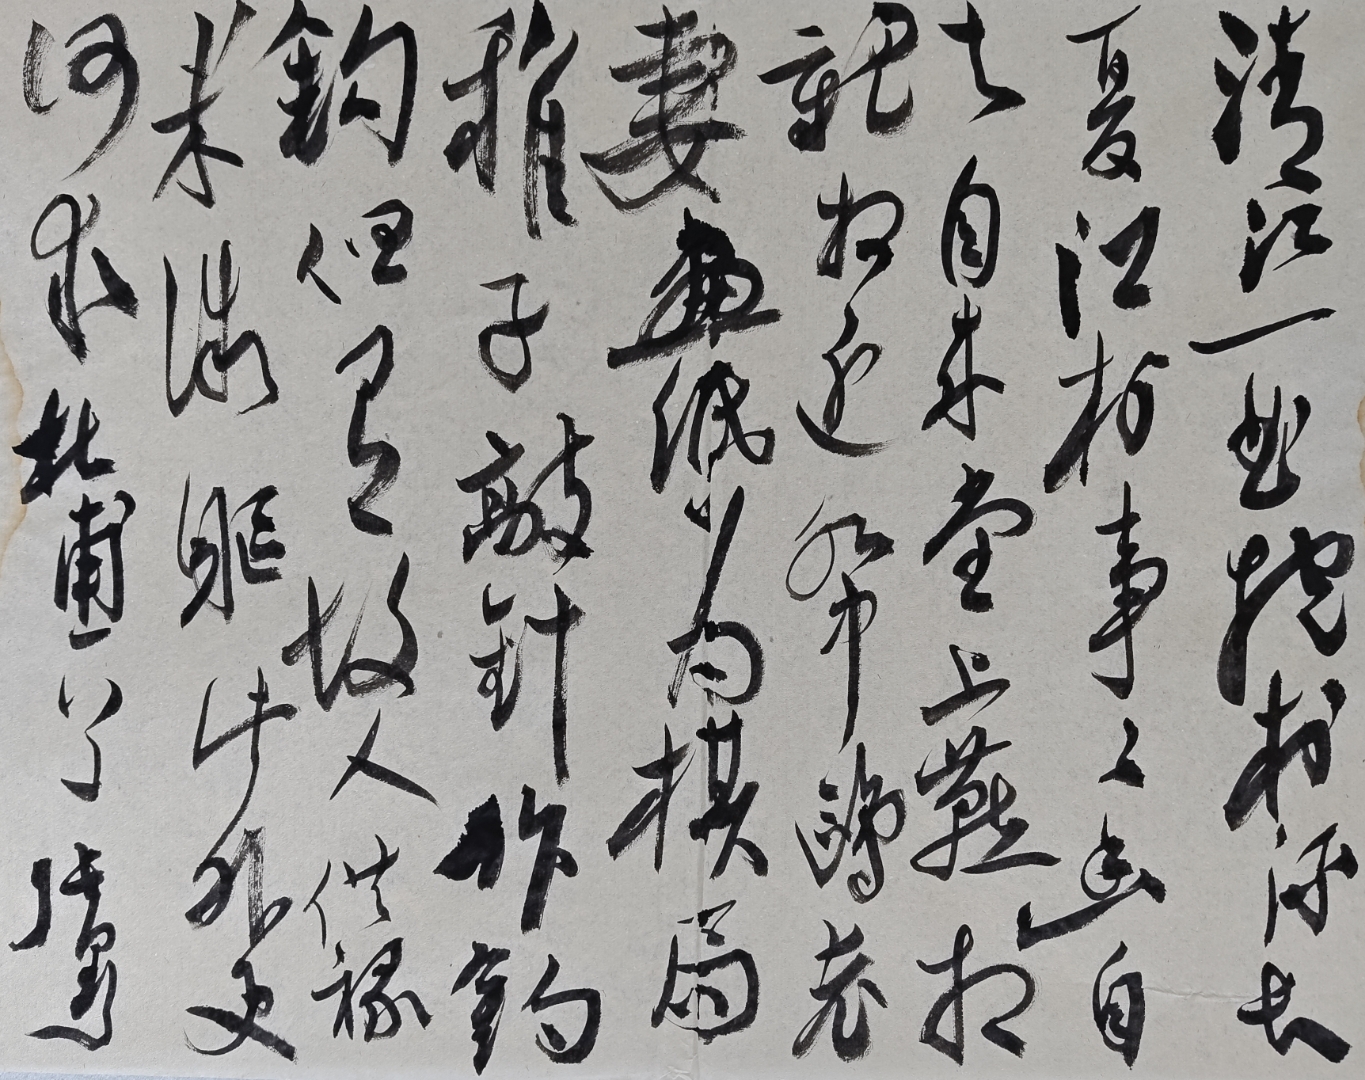 清江一曲抱村流長
夏江村事々幽自
去自来堂上燕相
親相近水中鷗老
妻畫紙為棋局
稚子敲針作釣
鈎但有故人供禄
米微軀此外更
何求杜甫